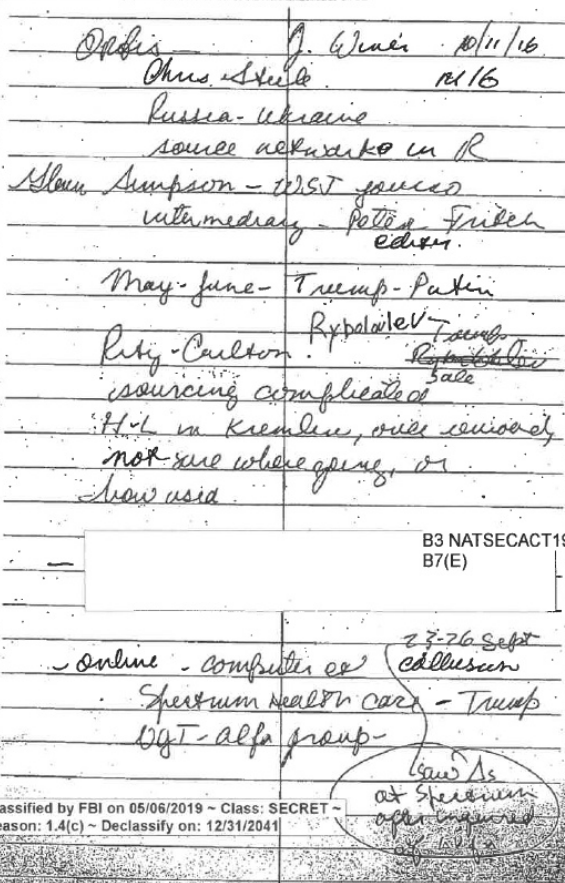 Orbis — J. Winer 10/11/16
Chris Steele
Russia - Ukraine
source networks in R
Glenn Simpson - WSJ
intermediary - Peter Fritch
editor.
May - June - Trump - Putin
Rybolovlev - Trump
Ritz - Carlton.
Sale
sourcing complicated
H-L in Kremlin, once removed,
not sure where going, or
how used
B3 NATSECACT19
B7(E)
23-26 Sept
- online - computer collusion
Spectrum Health care - Trump
Alfa group -
saw
at Spectrum
after inquired
of
assified by FBI on 05/06/2019 ~ Class: SECRET ~
eason: 1.4(c) ~ Declassify on: 12/31/2041